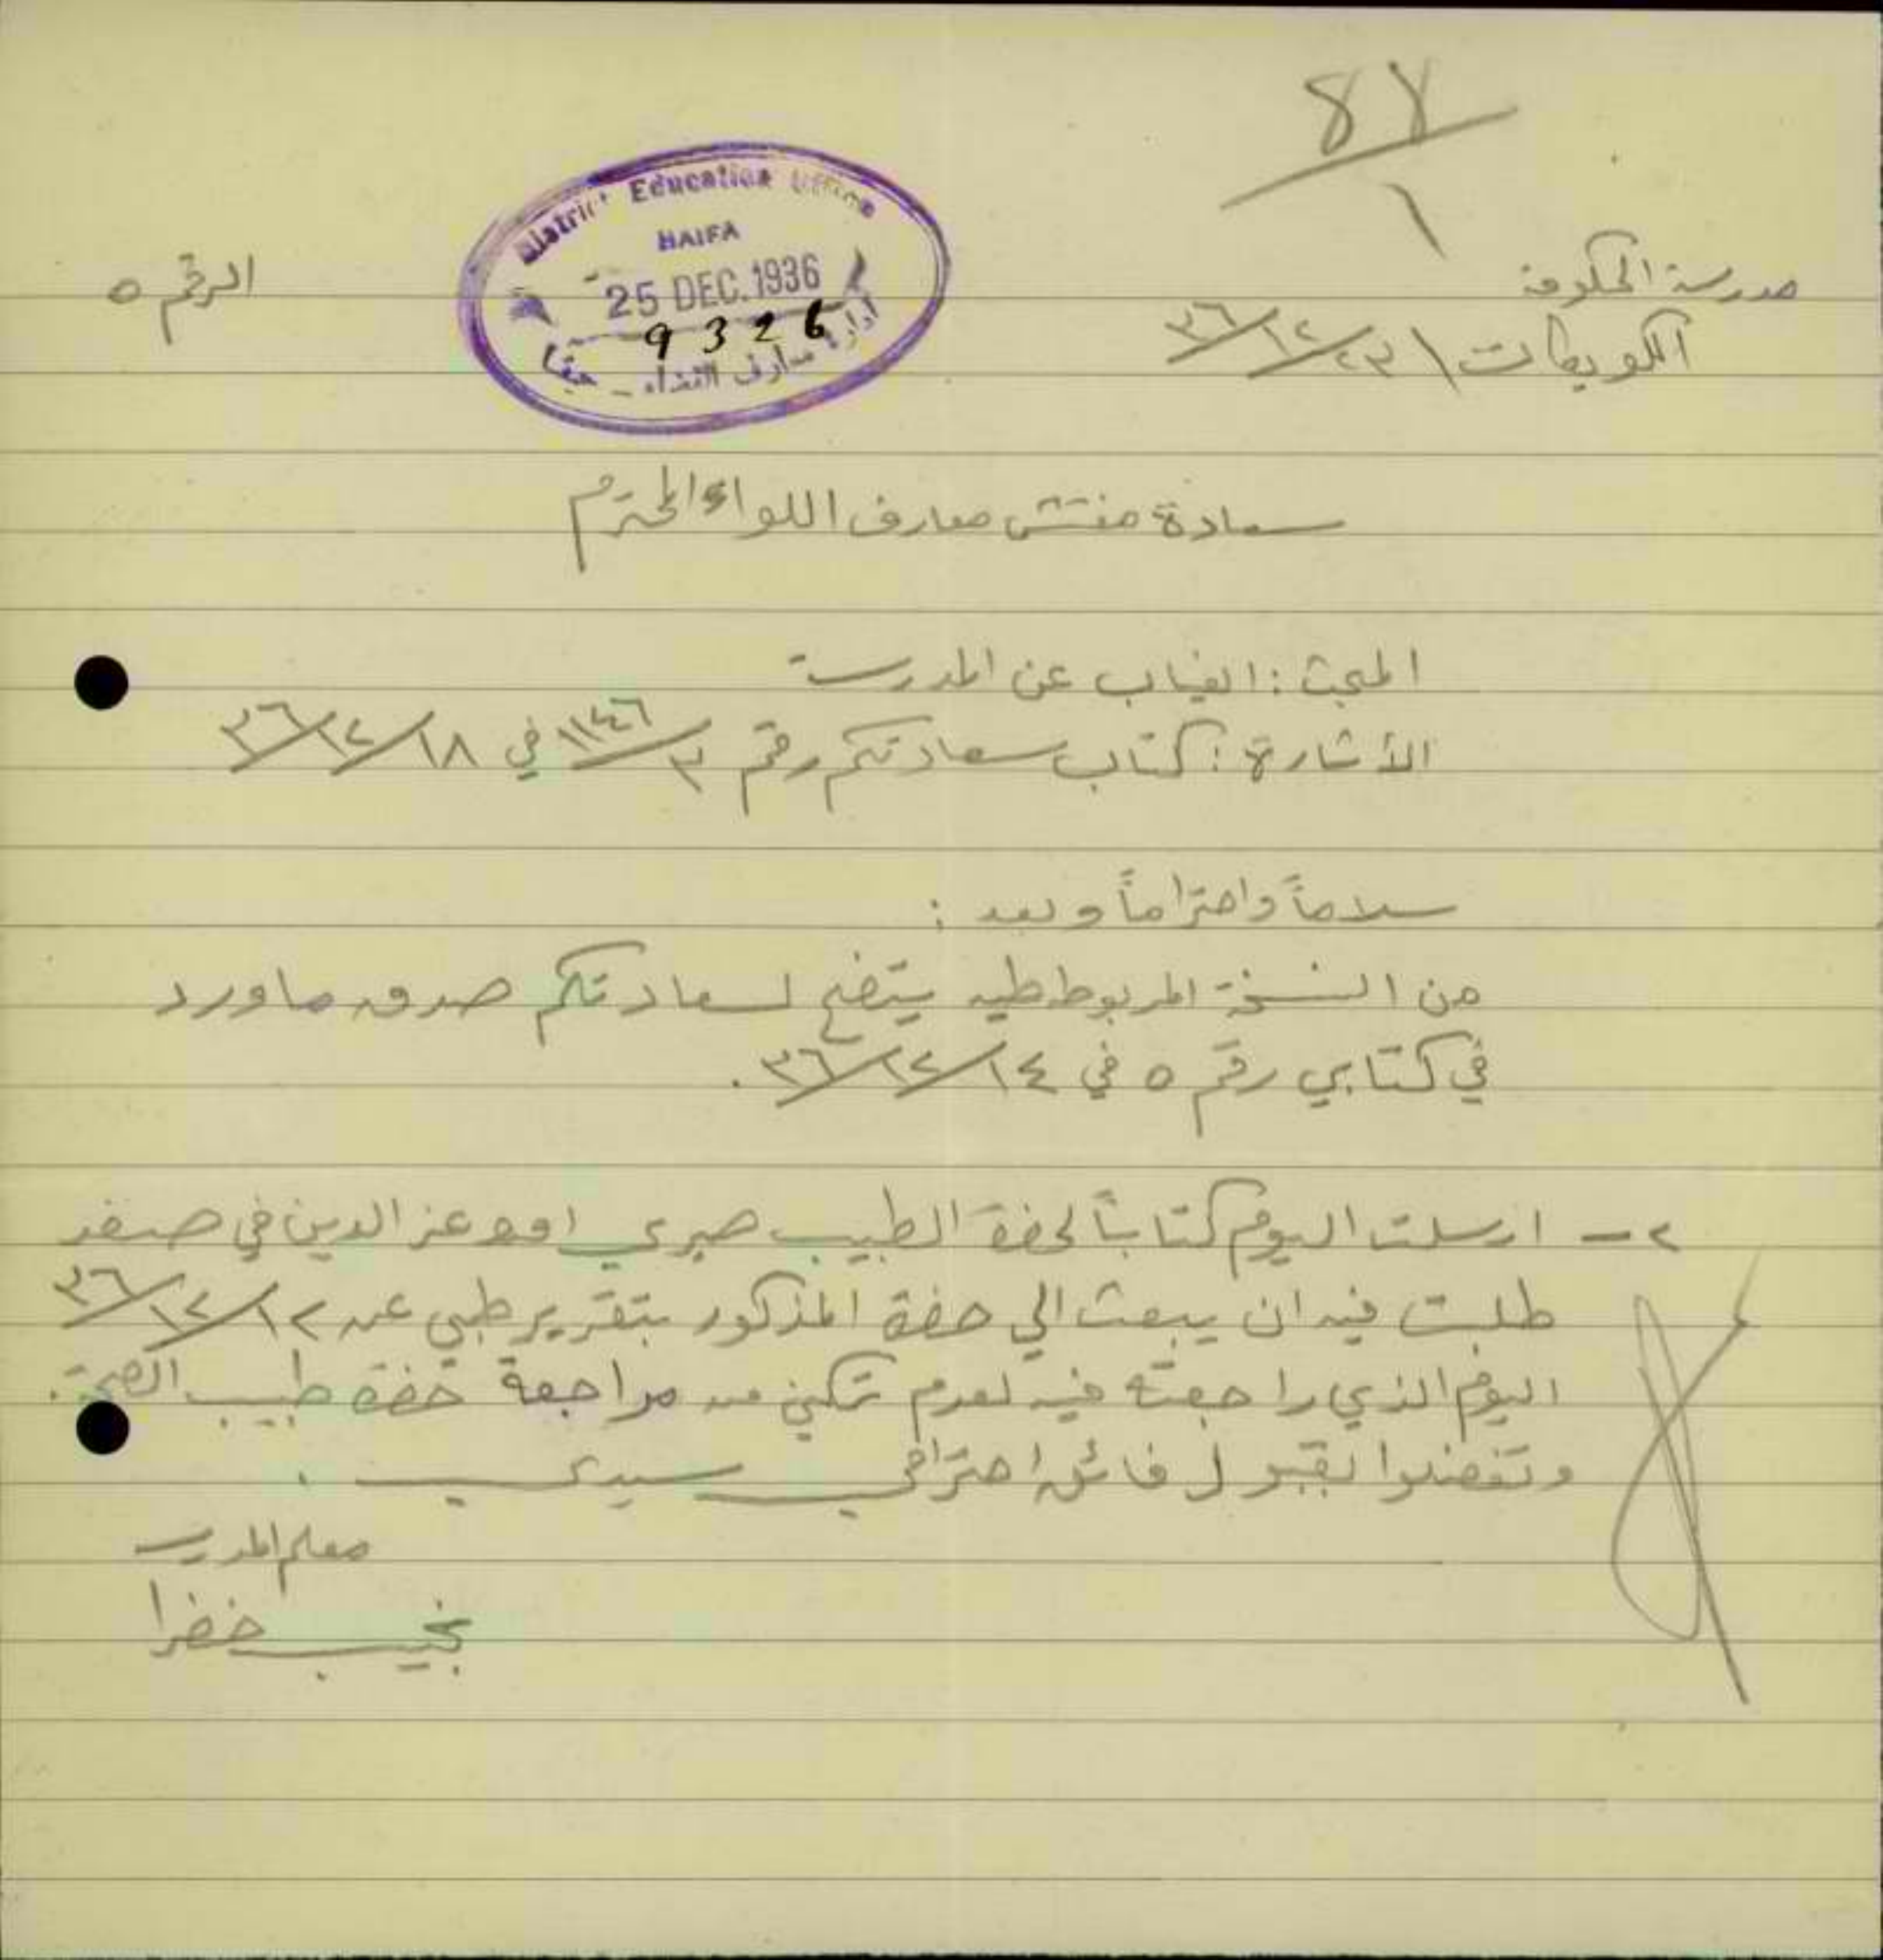 87
1
مدرسة الحكومة
الرقم ٥
District Education Office
HAIFA
25 DEC. 1936
9326
ادارة معارف القضاء - حيفا
سعادة مفتش معارف اللواء المحترم
المبحث : الغياب عن المدرسة
الأشارة : كتاب سعادتكم رقم في ١٨/١٢/٣٦
سلاماً واحتراماً وبعد :
من النسخة المربوطة طيه يتضح لسعادتكم صدق ما ورد
في كتابي رقم ٥ في ١٤/١٢/٣٦ .
٢ - ارسلت اليوم كتاباً لحضرة الطبيب صبري عز الدين في صفد
طلبت فيه ان يبعث الي حضرة المذكور بتقرير طبي عن ١٢/١٢/٣٦
اليوم الذي راجعته فيه لعدم تمكني من مراجعة حضرة طبيب الصحة .
وتفضلوا بقبول فائق احترامي سيدي .
معلم المدرسة
نجيب خضرا